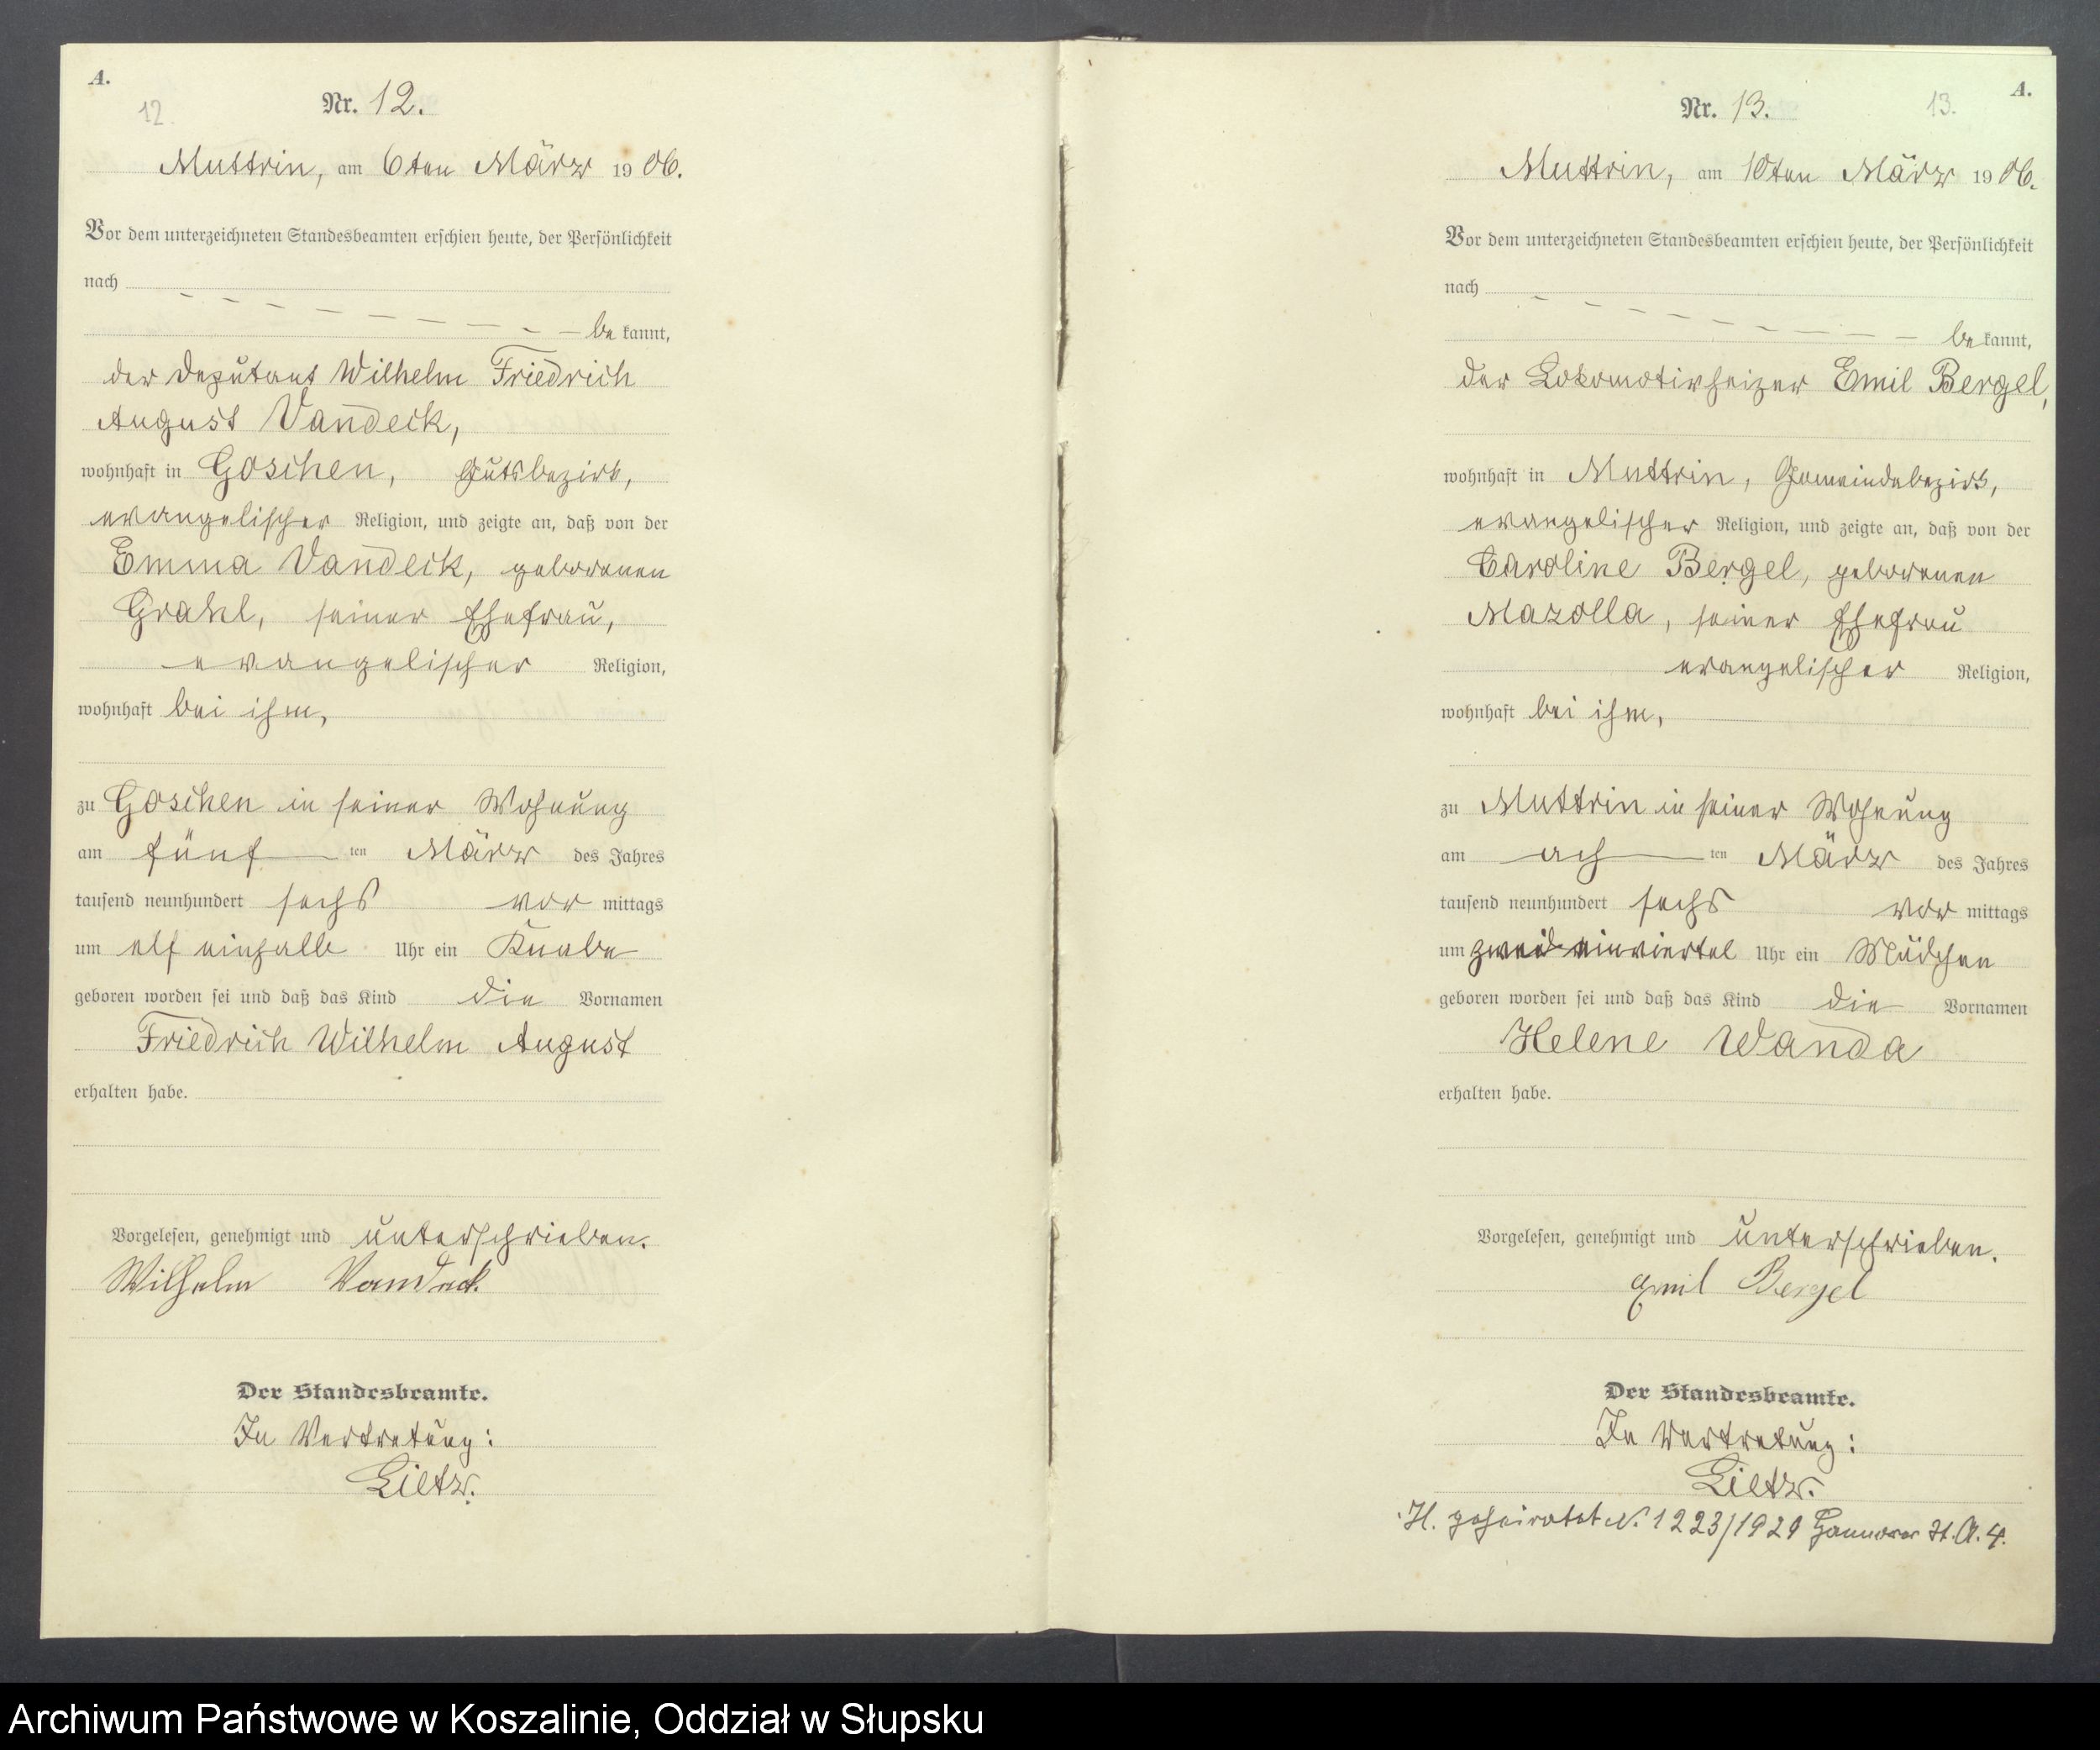 A.
12.
Nr. 12.
Muttrin, am 6ten März 1906.
Vor dem unterzeichneten Standesbeamten erschien heute, der Persönlichkeit
nach
be kannt,
der Deputant Wilhelm Friedrich
August Vandeck,
wohnhaft in Goschen, Gutsbezirk,
evangelischer Religion, und zeigte an, daß von der
Emma Vandeck, geborenen
Grahl, seiner Ehefrau,
evangelischer Religion,
wohnhaft bei ihm,
zu Goschen in seiner Wohnung
am fünf ten März des Jahres
tausend neunhundert sechs vor mittags
um elf einhalb Uhr ein Knabe
geboren worden sei und daß das Kind die Vornamen
Friedrich Wilhelm August
erhalten habe.
Vorgelesen, genehmigt und unterschrieben.
Wilhelm Vandeck
Der Standesbeamte.
In Vertretung:
Lietz.
A.
13.
Nr. 13.
Muttrin, am 10ten März 1906.
Vor dem unterzeichneten Standesbeamten erschien heute, der Persönlichkeit
nach
be kannt,
der Lokomotivheizer Emil Bergel,
wohnhaft in Muttrin, Gemeindebezirk,
evangelischer Religion, und zeigte an, daß von der
Caroline Bergel, geborenen
Mazolla, seiner Ehefrau
evangelischer Religion,
wohnhaft bei ihm,
zu Muttrin in seiner Wohnung
am ach ten März des Jahres
tausend neunhundert sechs vor mittags
um einviertel Uhr ein Mädchen
geboren worden sei und daß das Kind die Vornamen
Helene Wanda
erhalten habe.
Vorgelesen, genehmigt und unterschrieben.
Emil Bergel
Der Standesbeamte.
In Vertretung:
Lietz.
H. geheiratet N. 1223/1929 Hannover St. A. 4.
Archiwum Państwowe w Koszalinie, Oddział w Słupsku